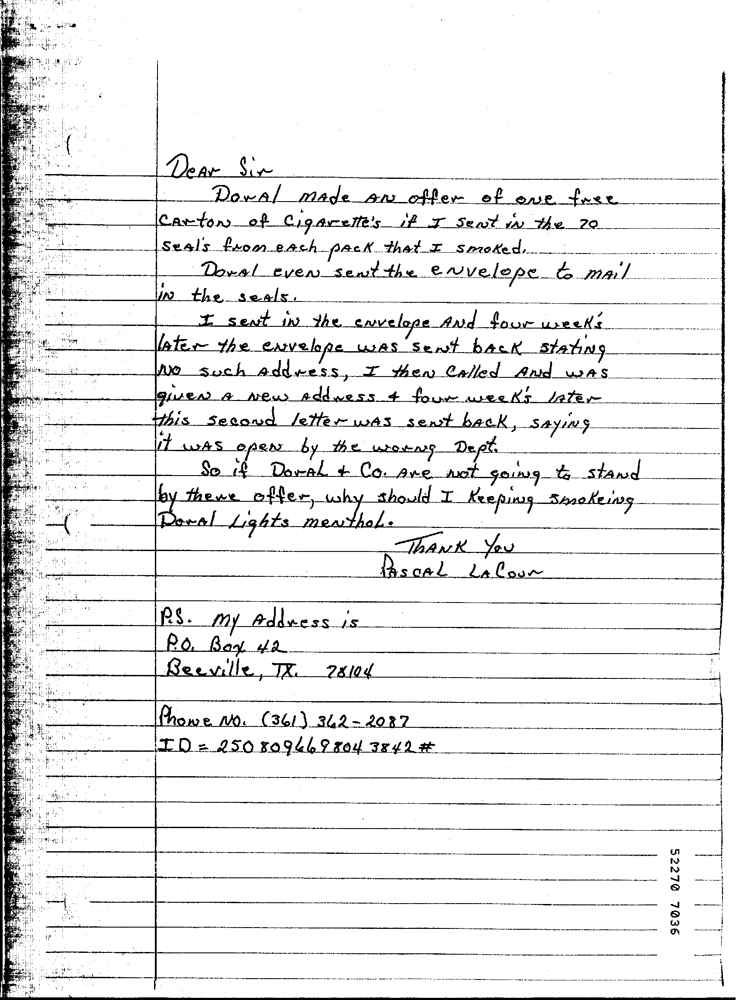 Dear Sir
Doral made an offer of one free
carton of cigarette's if I sent in the 70
seal's from each pack that I smoked.
Doral even sent the envelope to mail
in the seals.
I sent in the envelope and four week's
later the envelope was sent back stating
no such address, I then called and was
given a new address + four week's later
this second letter was sent back, saying
it was open by the worng Dept.
So if Doral + Co. are not going to stand
by there offer, why should I keeping smokeing
Doral Lights menthol.
Thank You
Pascal LaCour
P.S. my address is
P.O. Box 42
Beeville, TX. 78104
Phone No. (361) 362-2087
ID = 250 809669804 3842#
52270 7036